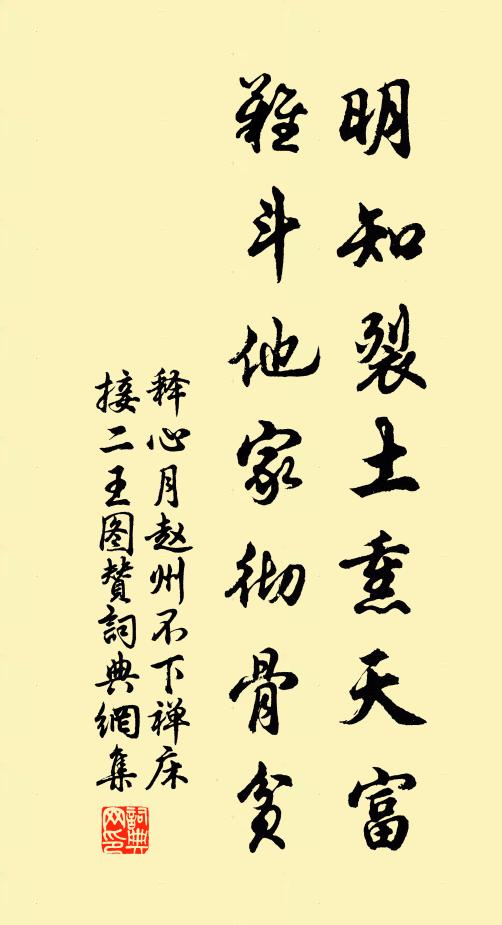 明知裂土熏天富
難斗他家彻骨貧
释心月赵州不下禅床
接二王图赞詞典網集
詞典网印